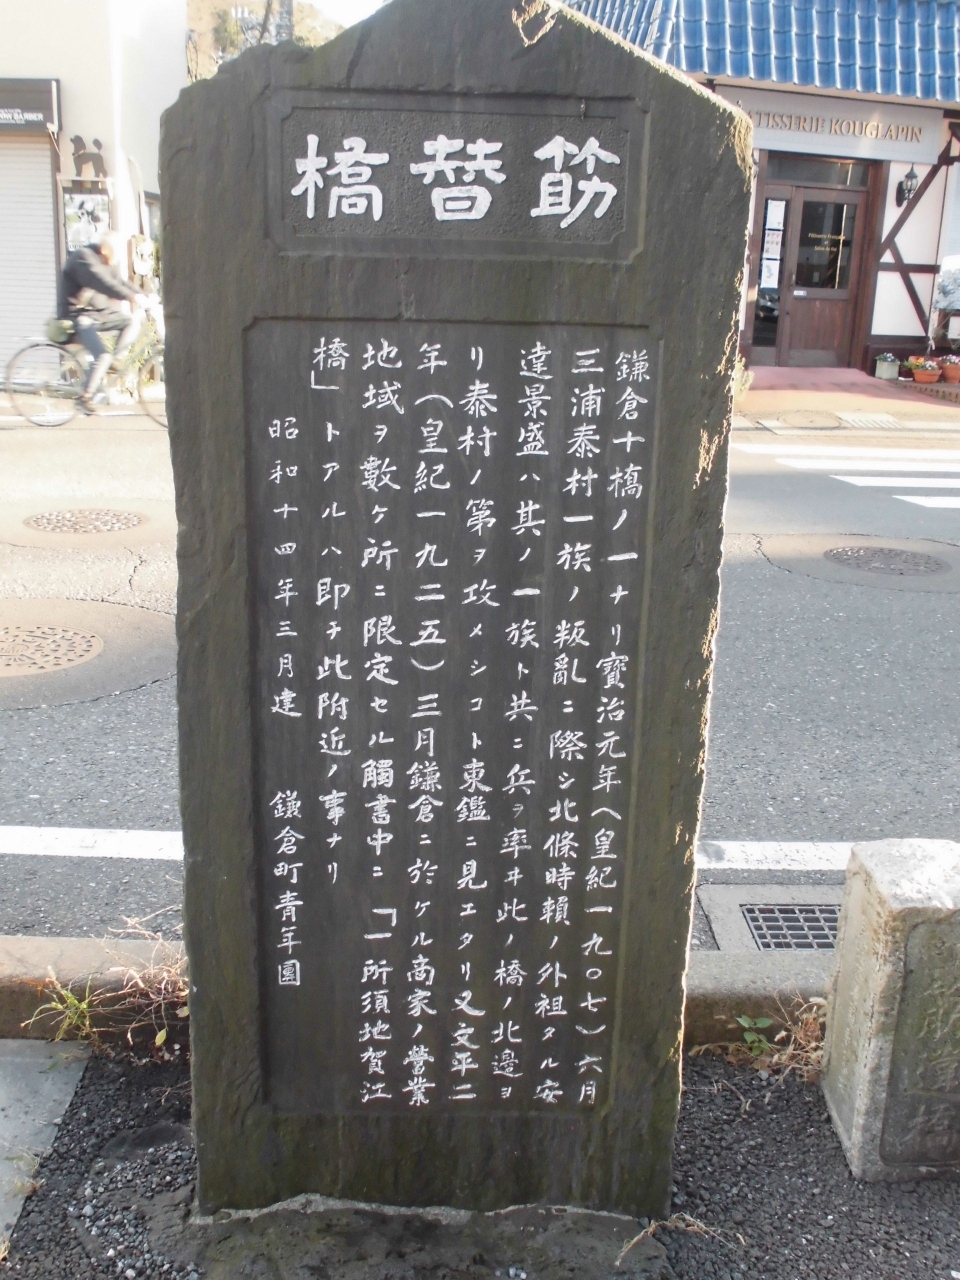 筋替橋
鎌倉十橋ノ一ナリ寶治元年(皇紀一九〇七)六月
三浦泰村一族ノ叛亂ニ際シ北條時賴ノ外祖タル安
達景盛ハ其ノ一族ト共ニ兵ヲ率ヰ此ノ橋ノ北邊ヨ
リ泰村ノ第ヲ攻メシコト東鑑ニ見エタリ又文平二
年(皇紀一九二五)三月鎌倉ニ於ケル商家ノ營業
地域ヲ數ケ所ニ限定セル觸書中ニ「一所須地賀江
橋」トアルハ即チ此附近ノ事ナリ
昭和十四年三月建 鎌倉町青年團
TISSERIE KOUGLAPIN